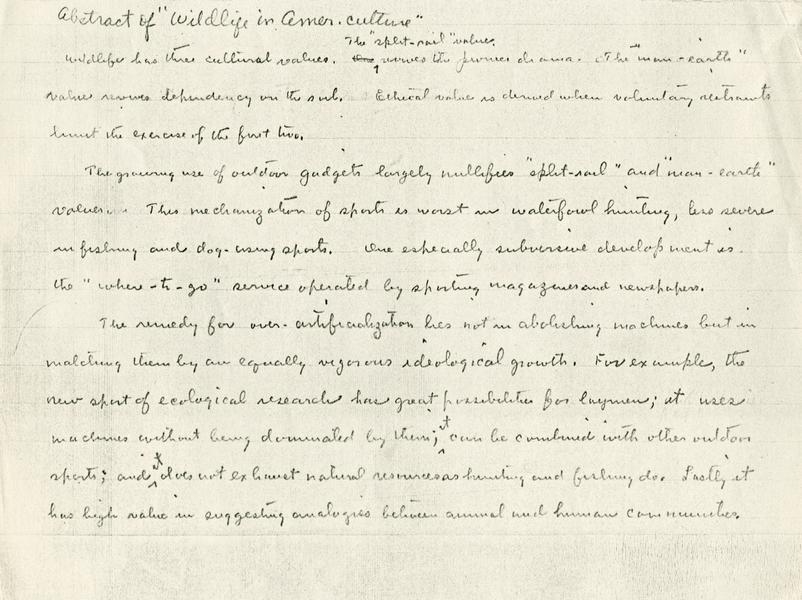 Abstract of "Wildlife in Amer. culture"
The "split-rail" value
Wildlife has three cultural values. revives the pioneer drama. The "man-earth"
value revives dependency on the soil. Ethical value is derived when voluntary restraints
limit the exercise of the first two.
The growing use of outdoor gadgets largely nullifies "split-rail" and "man-earth"
values. This mechanization of sports is worst in waterfowl hunting, less severe
in fishing and dog-using sports. One especially subversive development is
the "where-to-go" service operated by sporting magazines and newspapers.
The remedy for over-artificialization lies not in abolishing machines but in
matching them by an equally vigorous ideological growth. For example, the
new sport of ecological research has great possibilities for laymen; it uses
machines without being dominated by them; it can be combined with other outdoor
sports; and it does not exhaust natural resources as hunting and fishing do. Lastly it
has high value in suggesting analogies between animal and human communities.